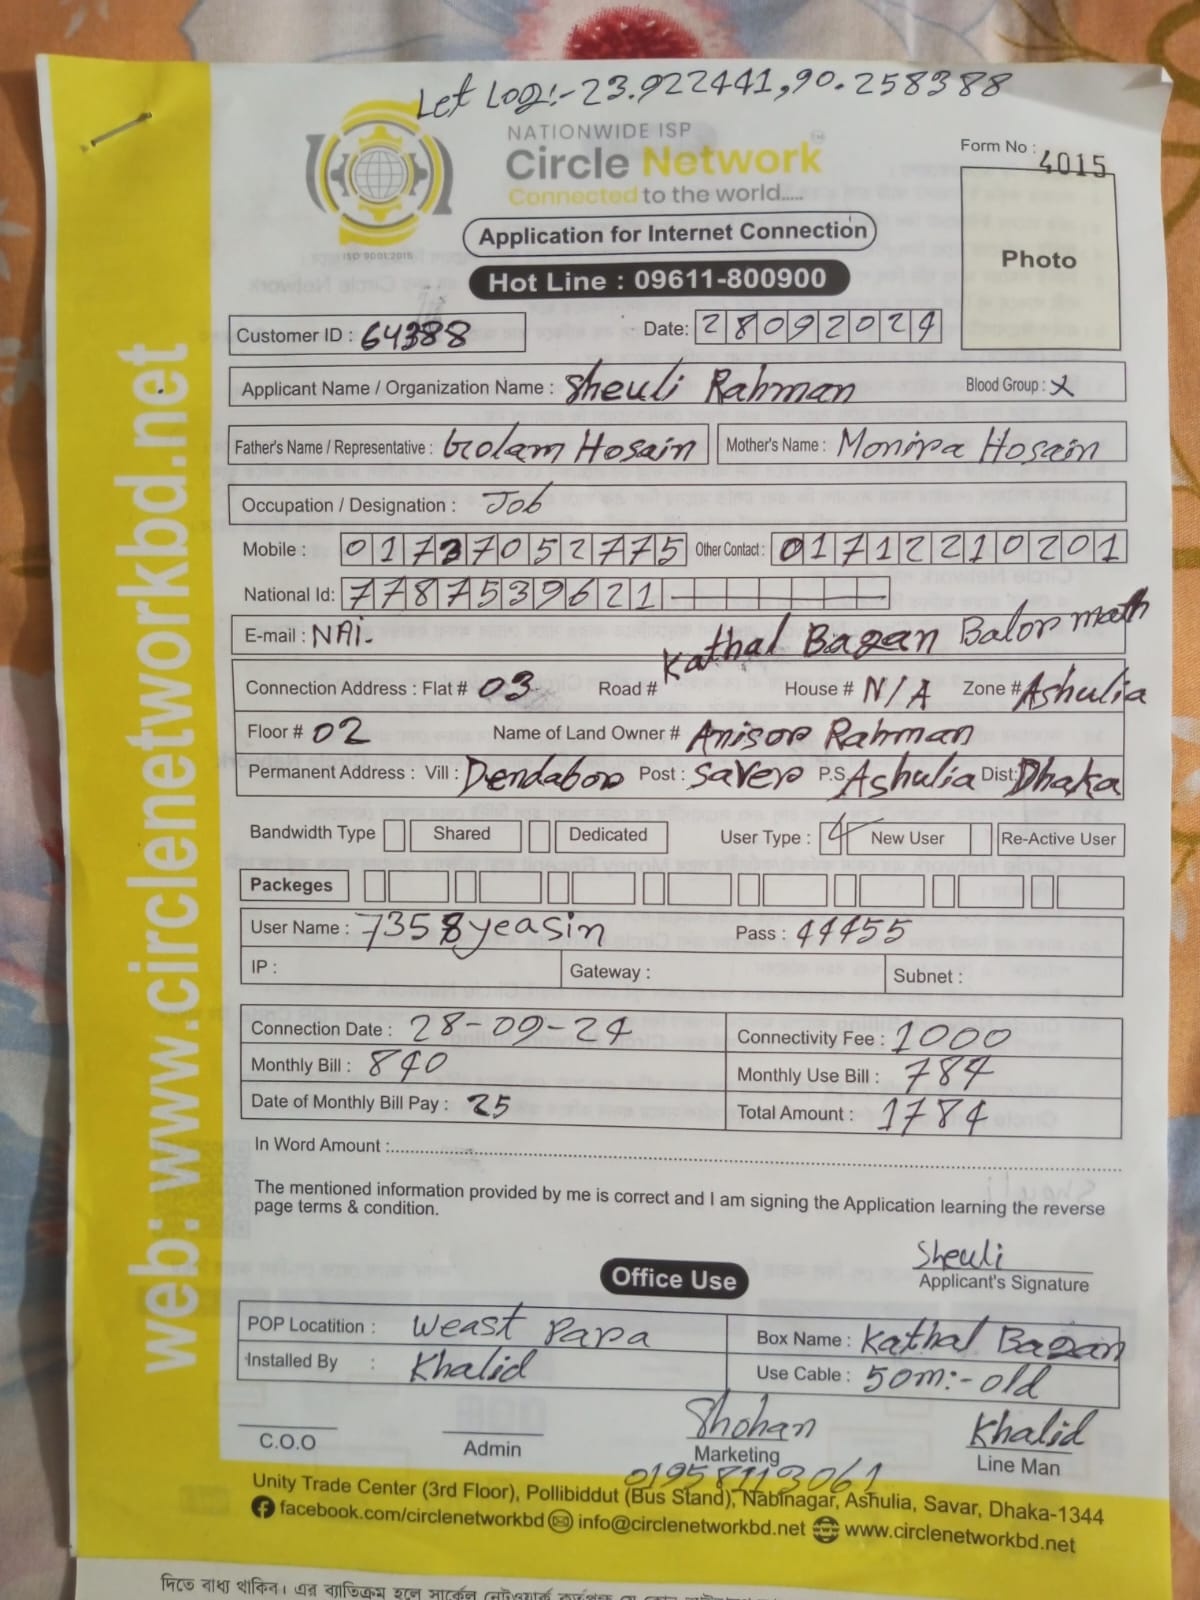 Let Log:- 23.922441,90.258388
NATIONWIDE ISP
Circle Network
Connected to the world.....
ISO 9001:2015
Form No : 4015
Photo
Application for Internet Connection
Hot Line : 09611-800900
Customer ID : 64388 Date: 28092024
Applicant Name / Organization Name : Sheuli Rahman Blood Group : X
Father's Name / Representative : Golam Hosain Mother's Name : Monira Hosain
Occupation / Designation : Job
Mobile : 01737052775 Other Contact : 01712210201
National Id: 7787539621
E-mail : NAI-
Kathal Bagan Balor math
Connection Address : Flat # 03 Road # House # N/A Zone # Ashulia
Floor # 02 Name of Land Owner # Anisor Rahman
Permanent Address : Vill : Dendabor Post : Saver P.S Ashulia Dist: Dhaka
Bandwidth Type Shared Dedicated User Type : New User Re-Active User
Packeges
User Name : 7358yeasin Pass : 44455
IP : Gateway : Subnet :
Connection Date : 28-09-24 Connectivity Fee : 1000
Monthly Bill : 840 Monthly Use Bill : 784
Date of Monthly Bill Pay : 25 Total Amount : 1784
In Word Amount :
The mentioned information provided by me is correct and I am signing the Application learning the reverse
page terms & condition.
Sheuli
Applicant's Signature
Office Use
POP Locatition : Weast Para Box Name : Kathal Bagan
Installed By : Khalid Use Cable : 50m:- old
Shohan Khalid
C.O.O Admin Marketing Line Man
01958113061
Unity Trade Center (3rd Floor), Pollibiddut (Bus Stand), Nabinagar, Ashulia, Savar, Dhaka-1344
facebook.com/circlenetworkbd info@circlenetworkbd.net www.circlenetworkbd.net
web: www.circlenetworkbd.net
দিতে বাধ্য থাকিব। এর ব্যতিক্রম হলে সার্কেল নেটওয়ার্ক কর্তৃপক্ষ যে কোন